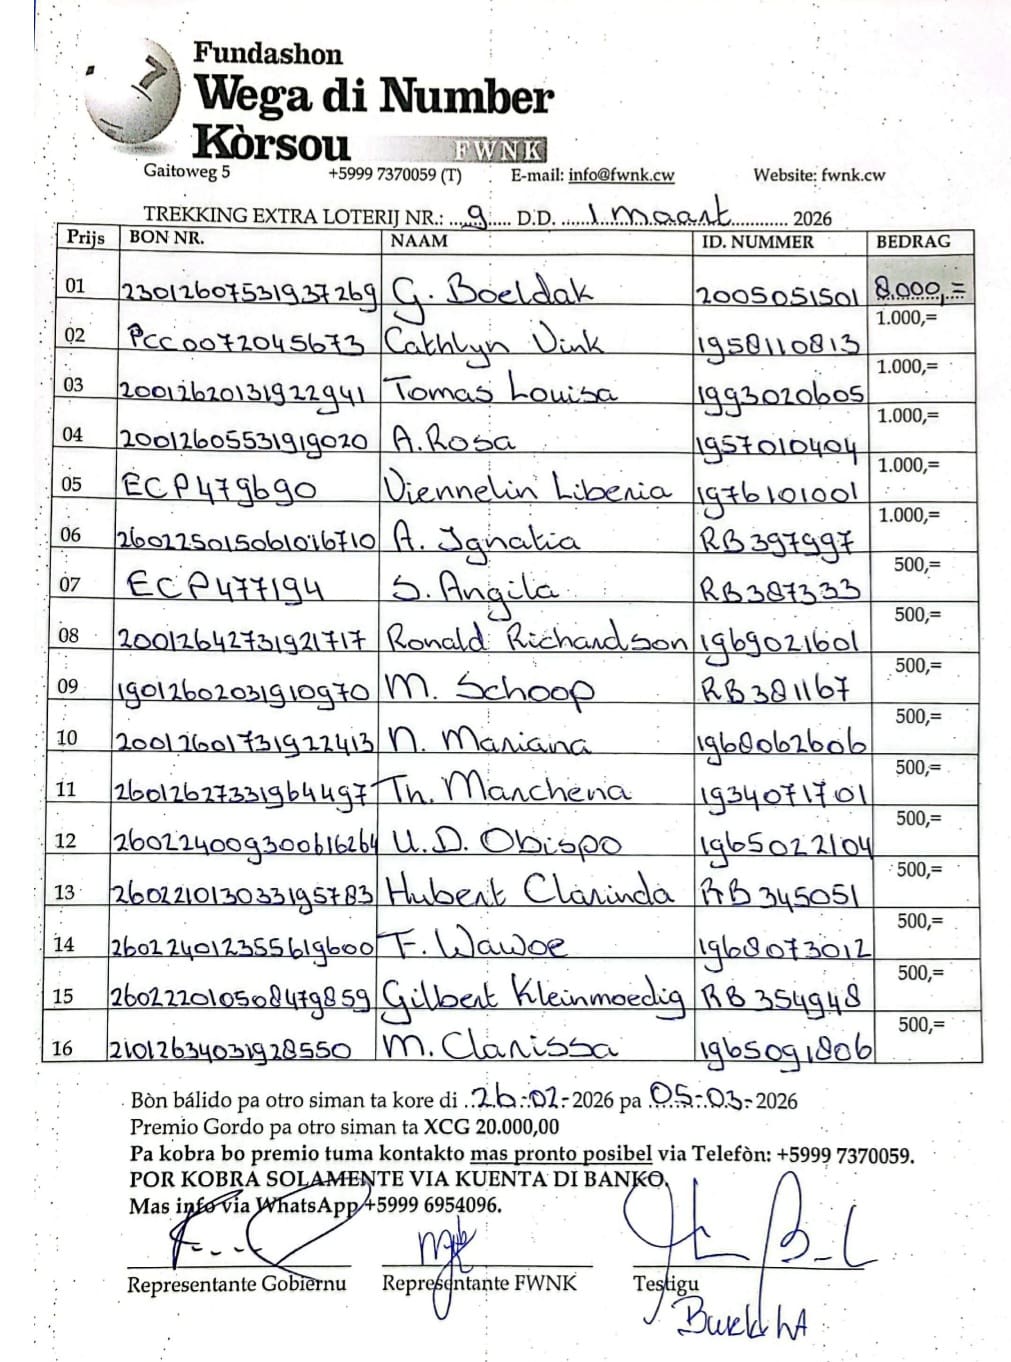 7
Fundashon
Wega di Number
Kòrsou FWNK
Gaitoweg 5 +5999 7370059 (T) E-mail: info@fwnk.cw Website: fwnk.cw
TREKKING EXTRA LOTERIJ NR.: ....9..... D.D. ......1.maart............ 2026
Prijs BON NR. NAAM ID. NUMMER BEDRAG
01 23012607531937269 G. Boeldak 2005051501 8.000,=
02 PCC0072045673 Cathlyn Vink 1958110813 1.000,=
03 20012620131922941 Tomas Louisa 1993020605 1.000,=
04 20012605531919020 A. Rosa 1957010404 1.000,=
05 ECP479690 Viennelin Liberia 1976101001 1.000,=
06 260225015061016710 A. Ignatia RB397997 1.000,=
07 ECP477194 S. Angila RB387333 500,=
08 20012642731921717 Ronald Richardson 1969021601 500,=
09 19012602031910970 M. Schoop RB381167 500,=
10 20012601731922413 N. Mariana 1968062606 500,=
11 26012627331964497 Th. Marchena 1934071701 500,=
12 26022400930061626 U.D. Obispo 1965022104 500,=
13 260221013033195783 Hubert Clarinda RB345051 500,=
14 260224012355619600 F. Wawoe 1968073012 500,=
15 260222010508479859 Gilbert Kleinmoedig RB354948 500,=
16 21012634031928550 M. Clarissa 1965091806 500,=
Bòn bálido pa otro siman ta kore di ..26.-.02.-2026 pa .05.-.03.-2026
Premio Gordo pa otro siman ta XCG 20.000,00
Pa kobra bo premio tuma kontakto mas pronto posibel via Telefòn: +5999 7370059.
POR KOBRA SOLAMENTE VIA KUENTA DI BANKO.
Mas info via WhatsApp +5999 6954096.
Representante Gobiernu Representante FWNK Testigu